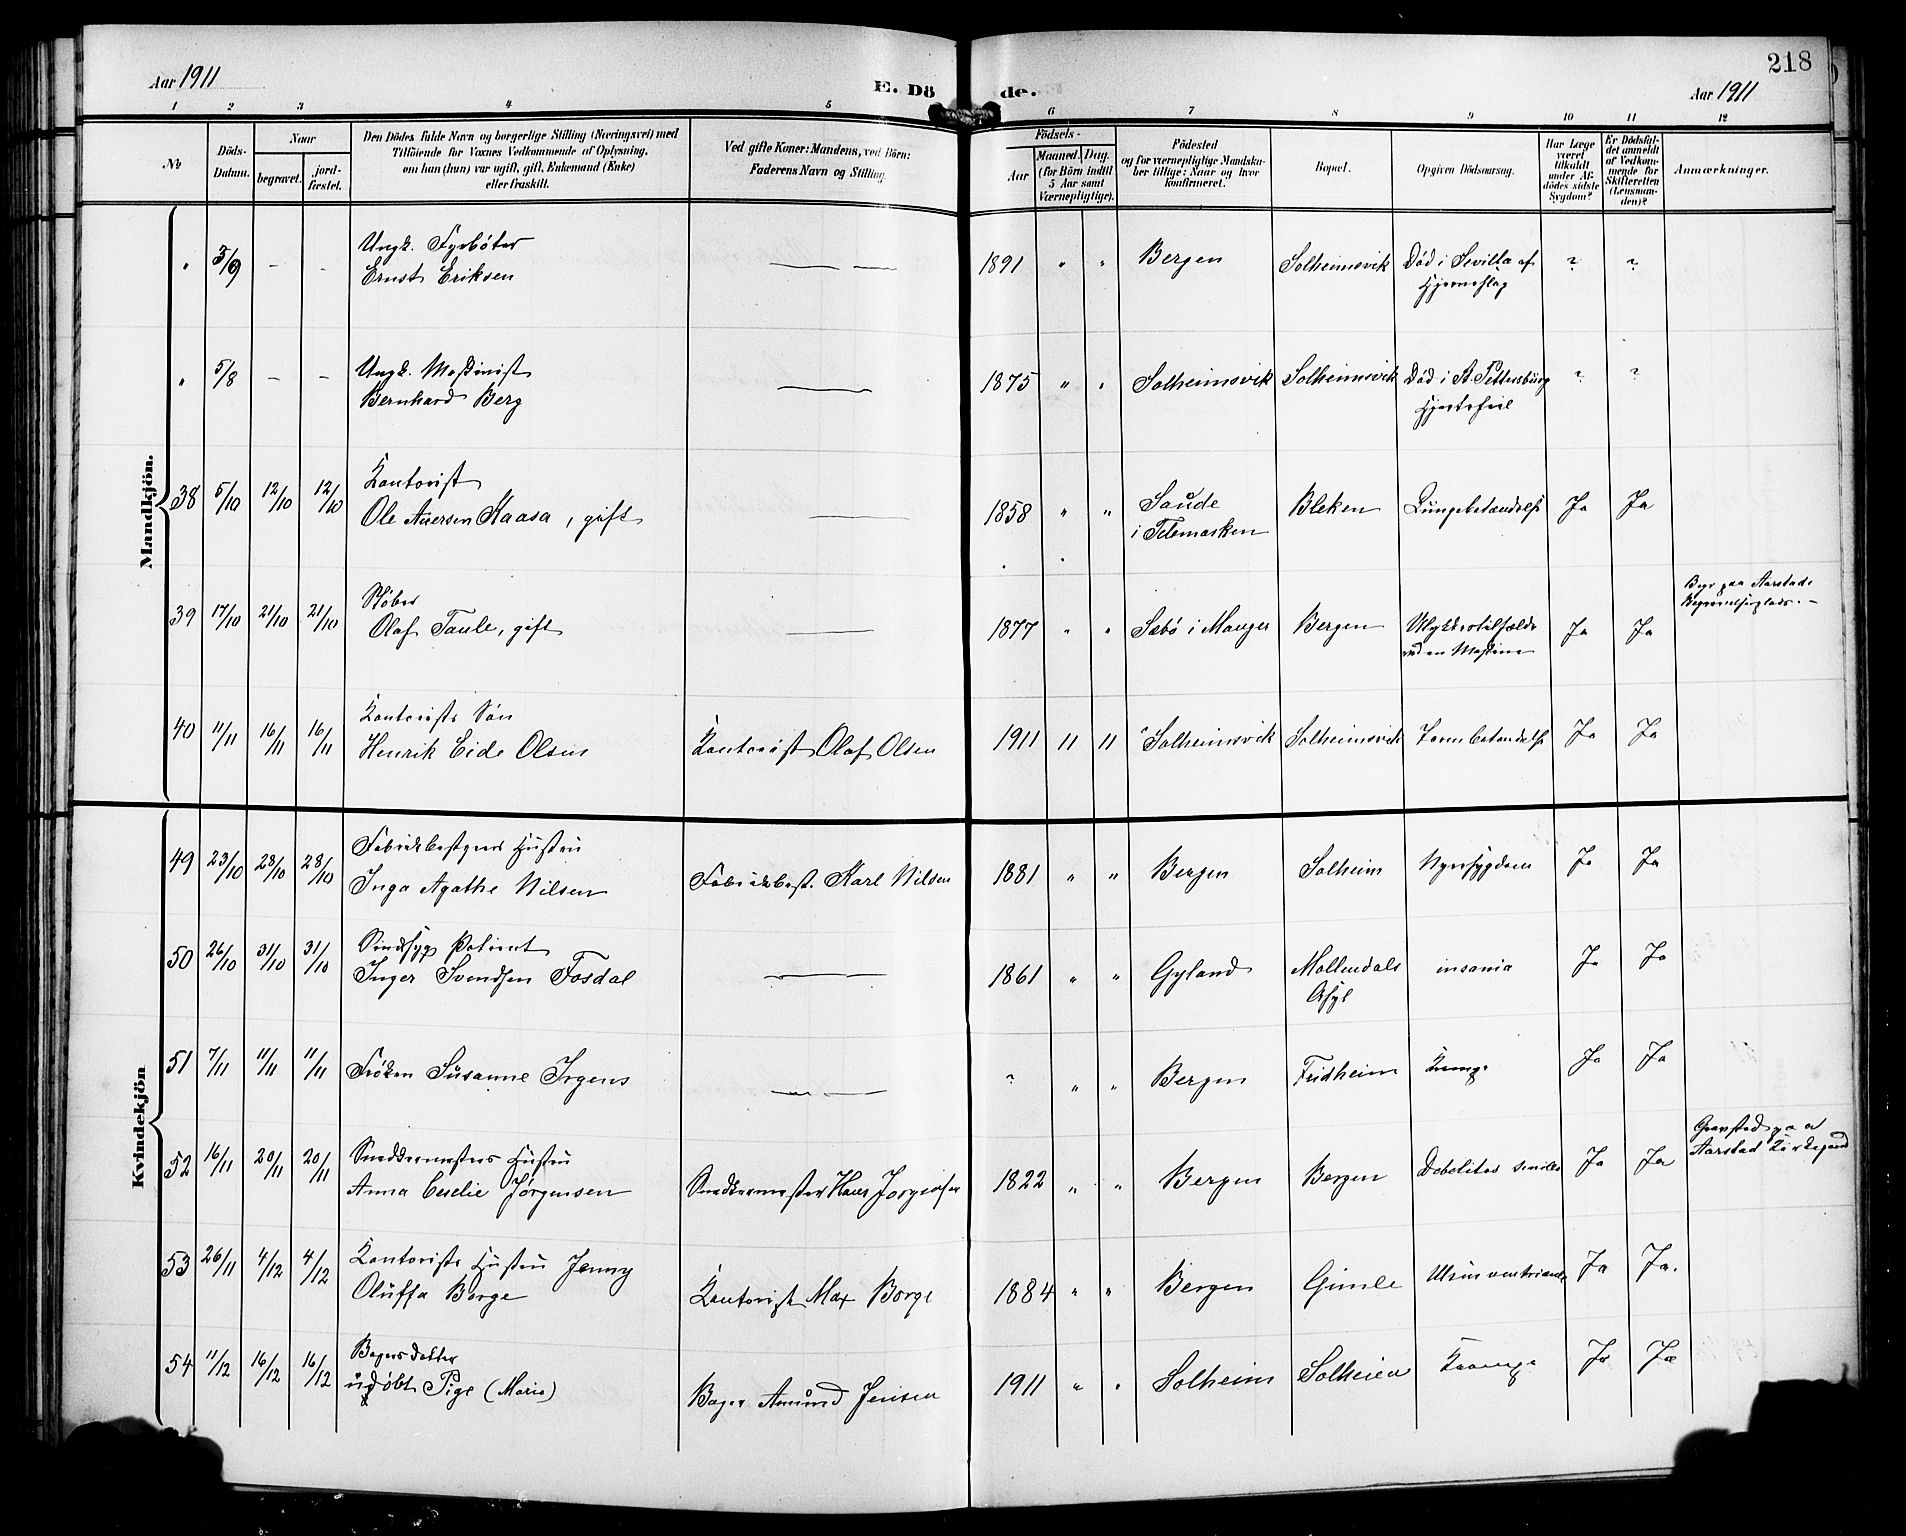 218
Aar 1911
E. Dö
de.
Aar 1911
1 2 3 4 5 6 7 8 9 10 11 12
No
Döds-Datum.
Naar
begravet.
jord-fæstet.
Den Dödes fulde Navn og borgerlige Stilling (Næringsvei) med
Tilföiende for Voxnes Vedkommende af Oplysning,
om han (hun) var ugift, gift, Enkemand (Enke)
eller fraskilt.
Ved gifte Koner: Mandens, ved Börn:
Faderens Navn og Stilling.
Födsels-
Aar
Maaned. Dag.
(for Börn indtil
5 Aar samt
Værnepligtige).
Födested
og for værnepligtige Mandska-
ber tillige: Naar og hvor
konfirmeret.
Bopæl.
Opgiven Dödsaarsag.
Har Læge
været
tilkaldt
under Af-
dødes sidste
Sygdom?
Er Dödsfal-
det anmeldt
af Vedkom-
mende for
Skifteretten
(Lensman-
den)?
Anmærkninger.
Mandkjön.
" 3/9 - - Ungk. Fyrböter
Ernst Eriksen
1891 " " Bergen Solheimsvik Död i Sevilla af
Hjerneslag ? ?
" 5/8 - - Ungk. Maskinist
Bernhard Berg
1875 " " Solheimsvik Solheimsvik Död i St. Pettersburg
Hjertefeil ? ?
38 5/10 12/10 12/10 Kontorist
Ole Aversen Kaasa, gift
1858 " " Saude
i Telemarken Bleken Lungebetændelse Ja Ja
39 17/10 21/10 21/10 Støber
Olaf Taule, gift
1877 " " Sæbö i Manger Bergen Ulykkestilfælde
ved en Maskine Ja Ja Begr. paa Aarstads
Begravelsesplads. -
40 11/11 16/11 16/11 Kontorists Sön
Henrik Eide Olsen Kontorist Olaf Olsen
1911 11 11 Solheimsvik Solheimsvik Tarmbetændelse Ja Ja
Kvindekjön
49 23/10 28/10 28/10 Fabrikbestyrers Hustru
Inga Agathe Nilsen Fabrikbest. Karl Nilsen
1881 " " Bergen Solheim Nyresygdom Ja Ja
50 26/10 31/10 31/10 Sindssyg Patient
Inger Svendsen Fosdal
1861 " " Gyland Møllendals
Asyl insania Ja Ja
51 7/11 11/11 11/11 Fröken Susanne Irgens
? " " Bergen Fridheim Ja Ja
52 16/11 20/11 20/11 Snedkermesters Hustru
Anna Cecelie Jørgensen Snedkermester Hans Jørgensen
1822 " " Bergen Bergen Debelitas senilis Ja Ja Gravsted paa
Aarstad Kirkegaard
53 26/11 4/12 4/12 Kontorists Hustru Jenny
Oluffa Borge Kontorist Max Borge
1884 " " Bergen Gimle Ulcus ventriculi Ja Ja.
54 11/12 16/12 16/12 Bagers Datter
udøbt Pige (Marie) Bager Amund Jensen
1911 " " Solheim Solheim Krampe Ja Ja